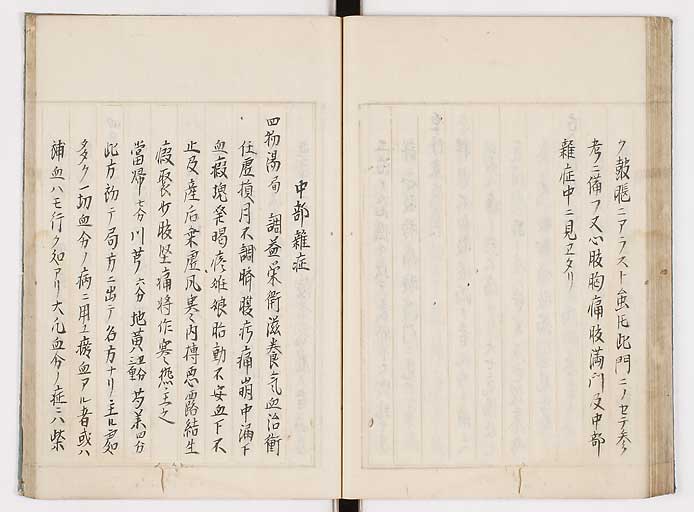 ク皷脹ニアラスト虽𪜈此門ニノセテ参
考ニ備フ又心腹胸痛腹満門及中部
雜症中ニ見ヱタリ
中部雜症
四物湯局 調益栄衛滋養気血治衝
任虚損月不調臍腹㽲痛崩中漏下
血瘕塊発歇疼妊娠胎動不安血下不
止及産后乗虚風寒内搏悪露結生
瘕聚少腹堅痛将作寒熱主之
當帰 川芎 六分 地黄 芍薬四分
此方初テ局方ニ出テ名方ナリ主ル處
多ク一切血分ノ病ニ用ユ瘀血アル者或ハ
補血ハモ行ク知アリ大凡血分ノ症ニハ柴